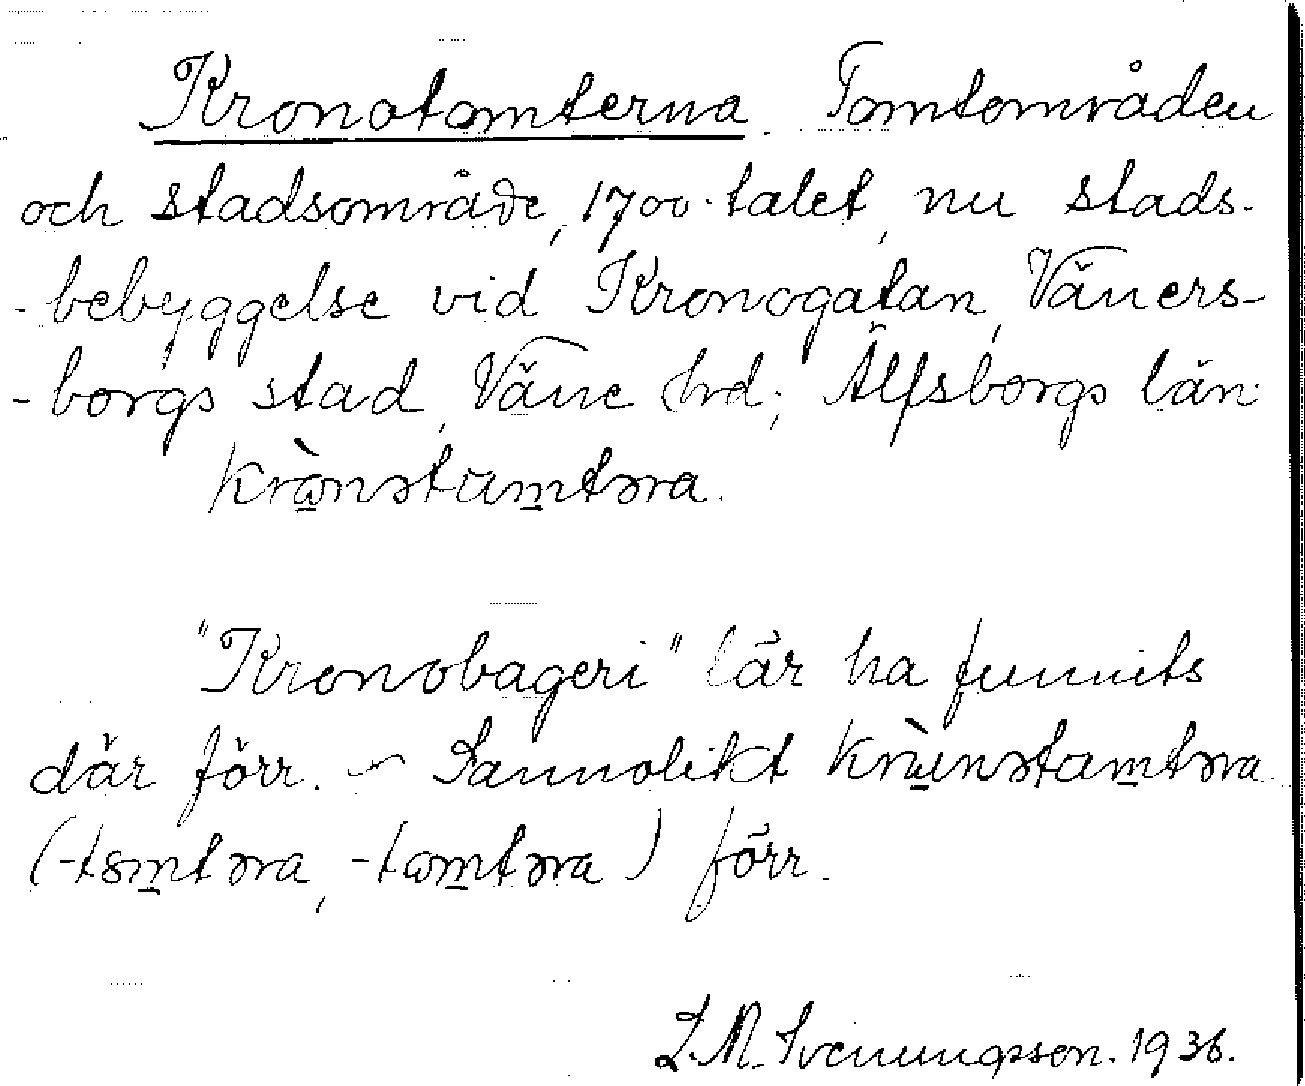 Kronotomterna. Tomtområden
och stadsområde, 1700-talet, nu stads-
-bebyggelse vid Kronogatan, Väners-
-borgs stad, Väne hd; Älfsborgs län.
"Kronobageri" lär ha funnits
där förr. – Sannolikt
förr.
L.M. Svenungsson. 1936.